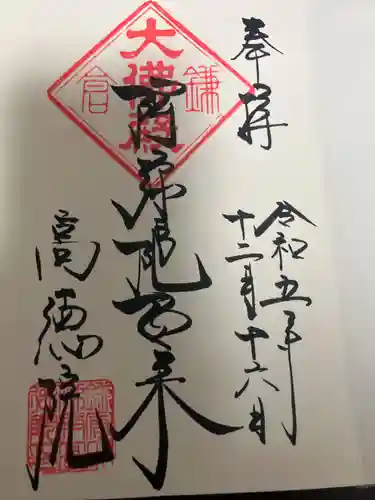 奉拝
令和五年
十二月十六日
鎌倉
大佛殿
南無阿弥陀如来
高徳院